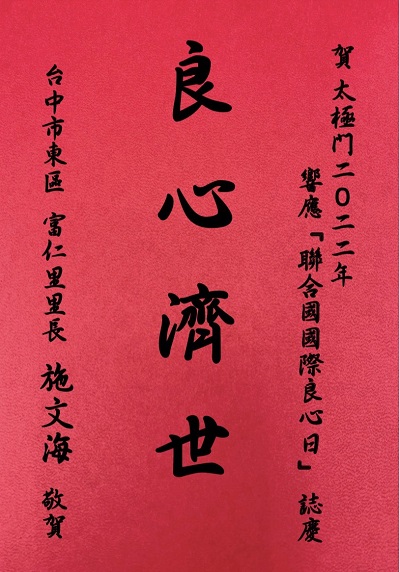 賀 太極門二〇二二年
響應「聯合國國際良心日」 誌慶
良心濟世
台中市東區 富仁里里長 施文海 敬賀